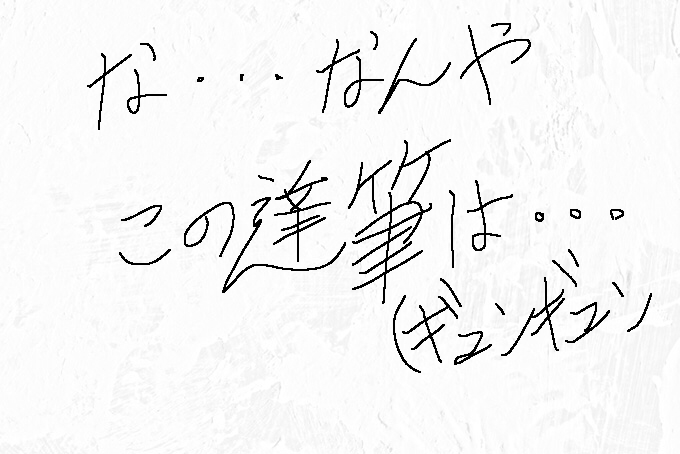 な・・・なんや
この達筆は・・・
(ギュンギュン)